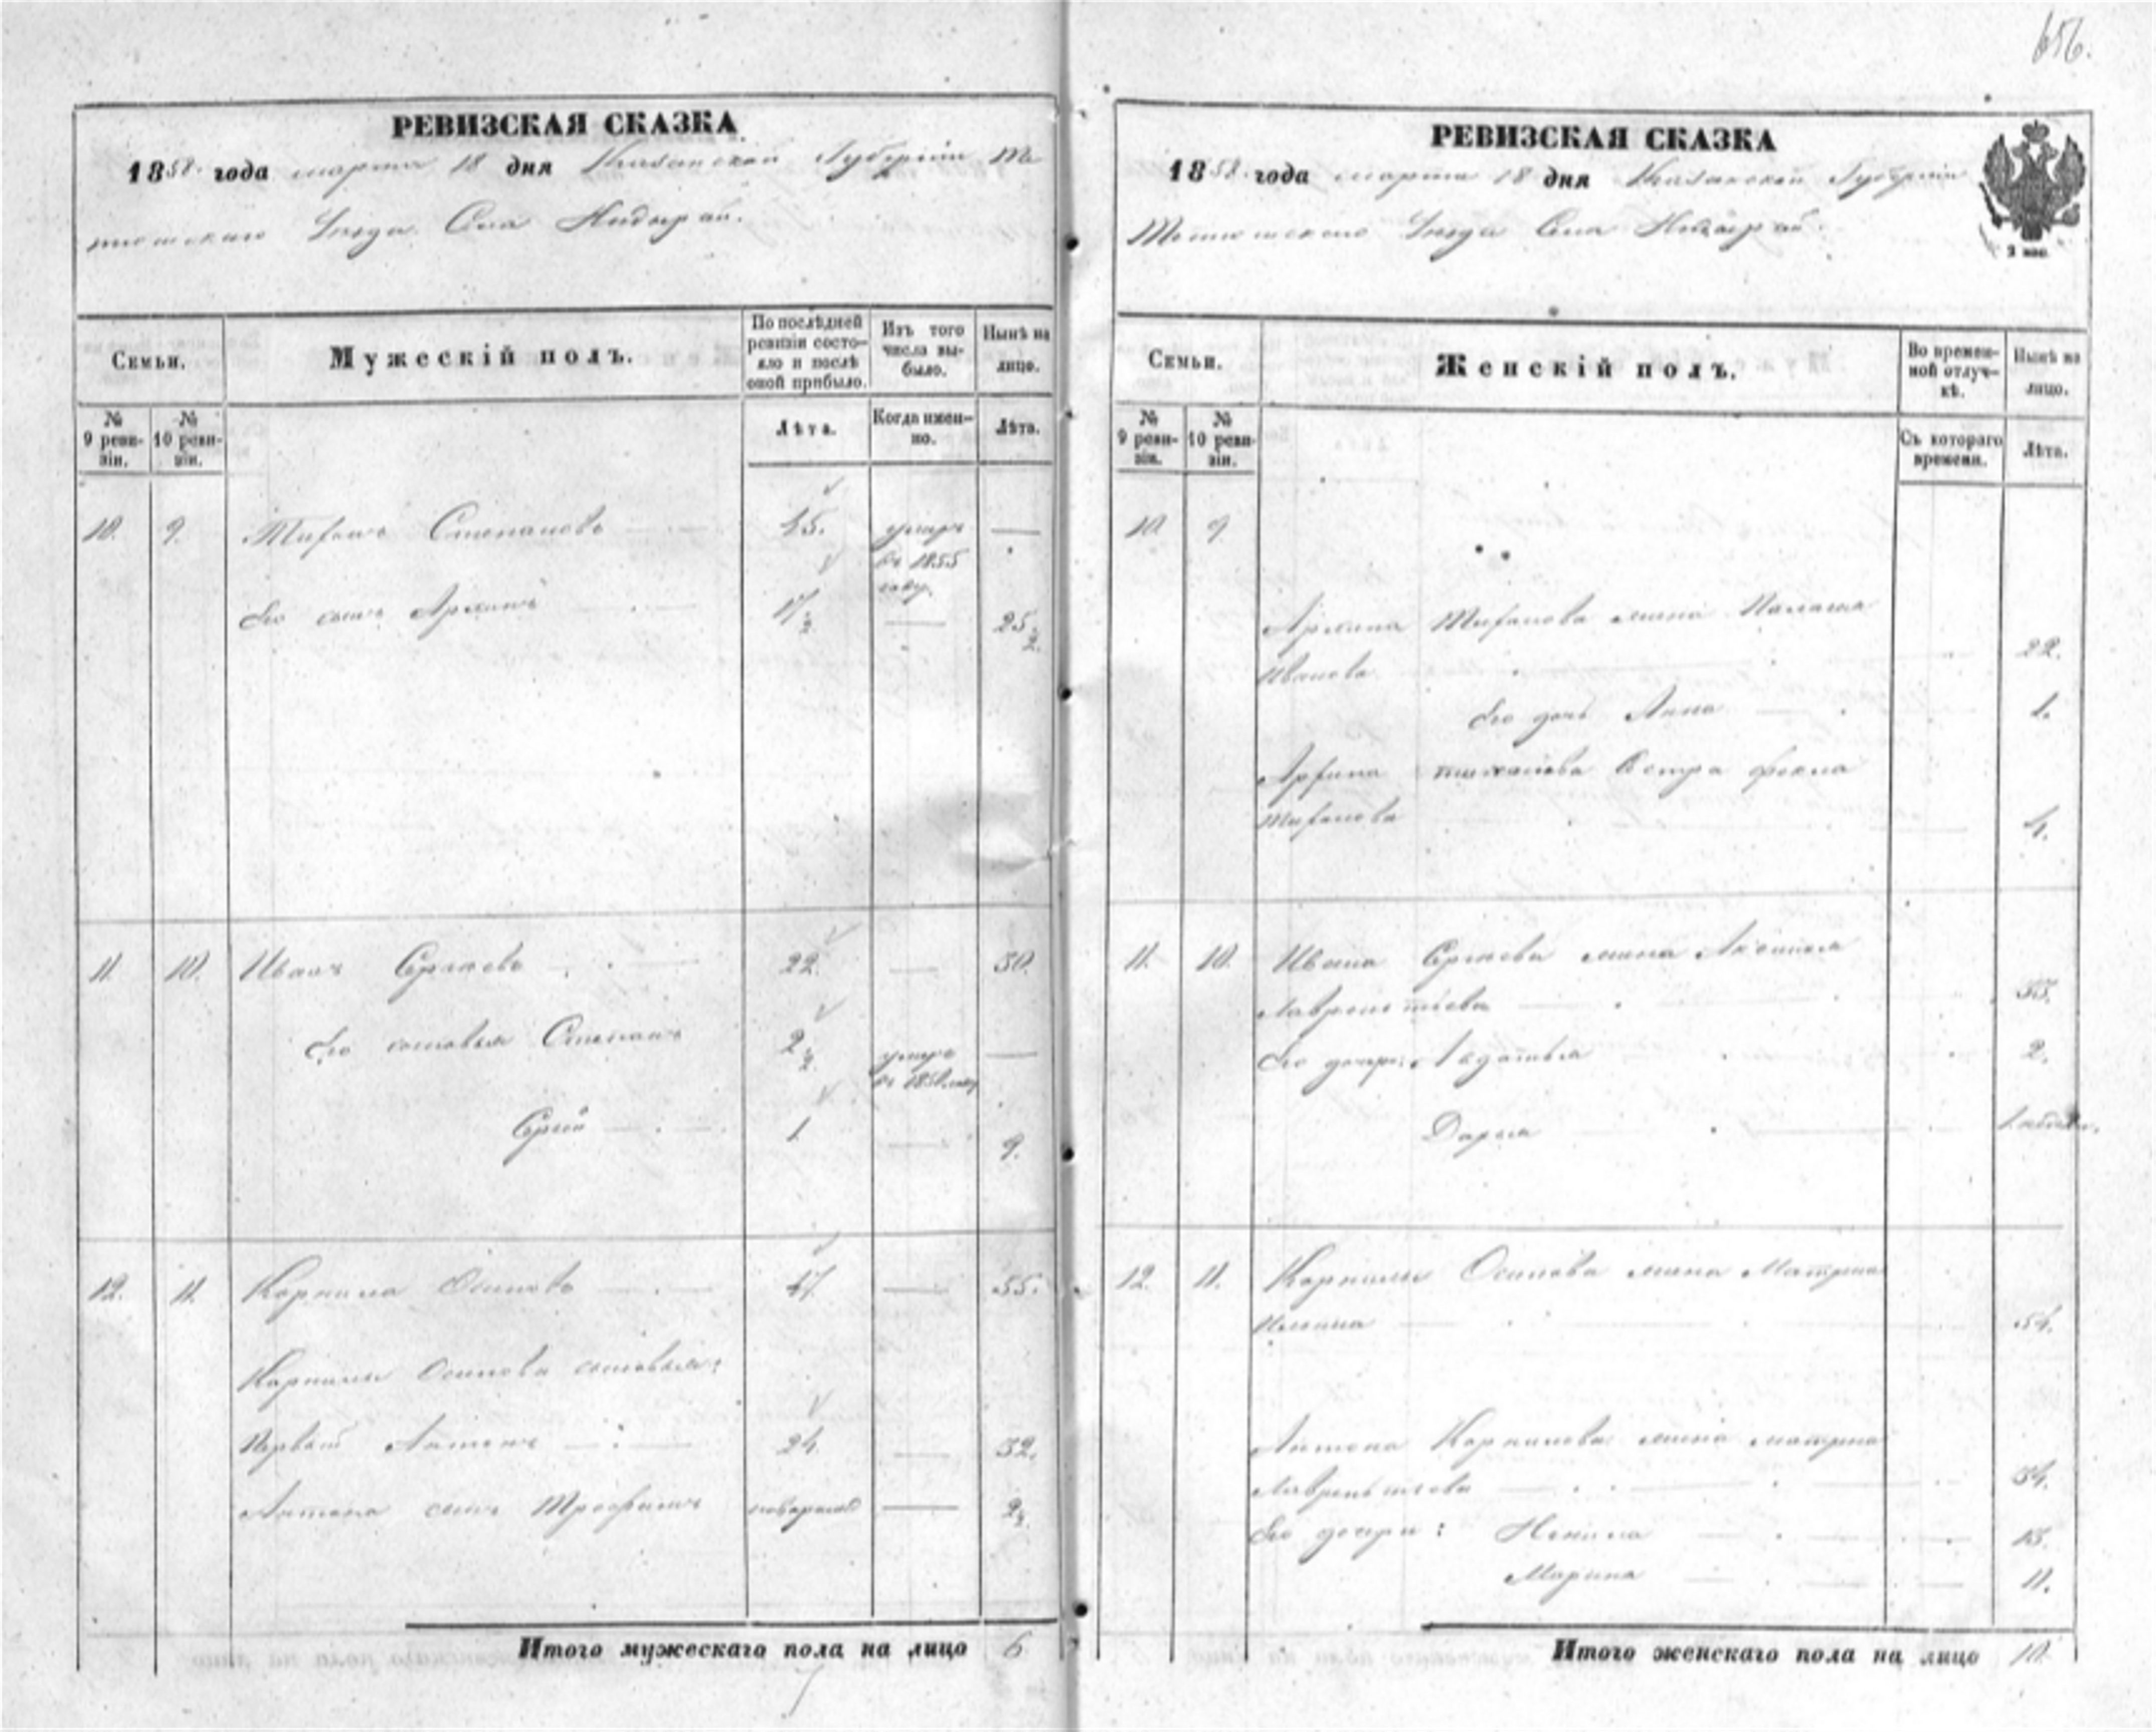 656.
РЕВИЗСКАЯ СКАЗКА
1858 года марта 18 дня Казанской Губернии Те
тюшскаго Уезда Села
Семьи.
Мужескій полъ.
По послѣдней ревизіи состояло и послѣ оной прибыло.
Изъ того числа выбыло.
Нынѣ на лицо.
№ 9 ревизіи.
№ 10 ревизіи.
Лѣта.
Когда именно.
Лѣта.
10. 9. Степановъ 45. умеръ —
въ 1855
году
Его сынъ 17 1/2 — 25 1/2
11. 10. Иванъ Сергѣевъ 22. — 30.
Его сыновья Степанъ 2 1/2 умеръ —
въ 1850 году
Сергѣй 1 — 9.
12. 11. Корнила Осиповъ 47 — 55.
Корнилы Осипова сыновья:
Первый Антонъ 24 — 32.
Антона сынъ Трофимъ —
Итого мужескаго пола на лицо 6
РЕВИЗСКАЯ СКАЗКА
1858 года марта 18 дня Казанской Губерніи
Тетюшскаго Уезда Села
3 коп.
Семьи.
Женскій полъ.
Во временной отлучкѣ.
Нынѣ на лицо.
№ 9 ревизіи.
№ 10 ревизіи.
Съ котораго времени.
Лѣта.
10. 9
жена
Иванова 22.
Его дочь Анна 1.
сестра Фекла
4.
11. 10. Ивана Сергѣева жена
Лаврентьева 33.
Его дочери: Авдотья 2.
Дарья
12. 11. Корнилы Осипова жена Матрена
Ильина 54.
Антона Корнилова жена Матрена
Лаврентьева 34.
Его дочери: Ненила 13.
Марина 11.
Итого женскаго пола на лицо 10.